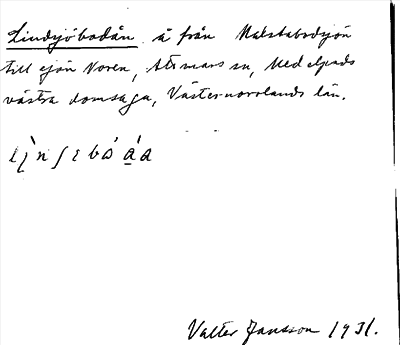 Lindsjöbodån å från Makstabodsjön
till sjön Noren, Attmars sn, Medelpads
västra domsaga, Västernorrlands län.
Valter Jansson 1931.